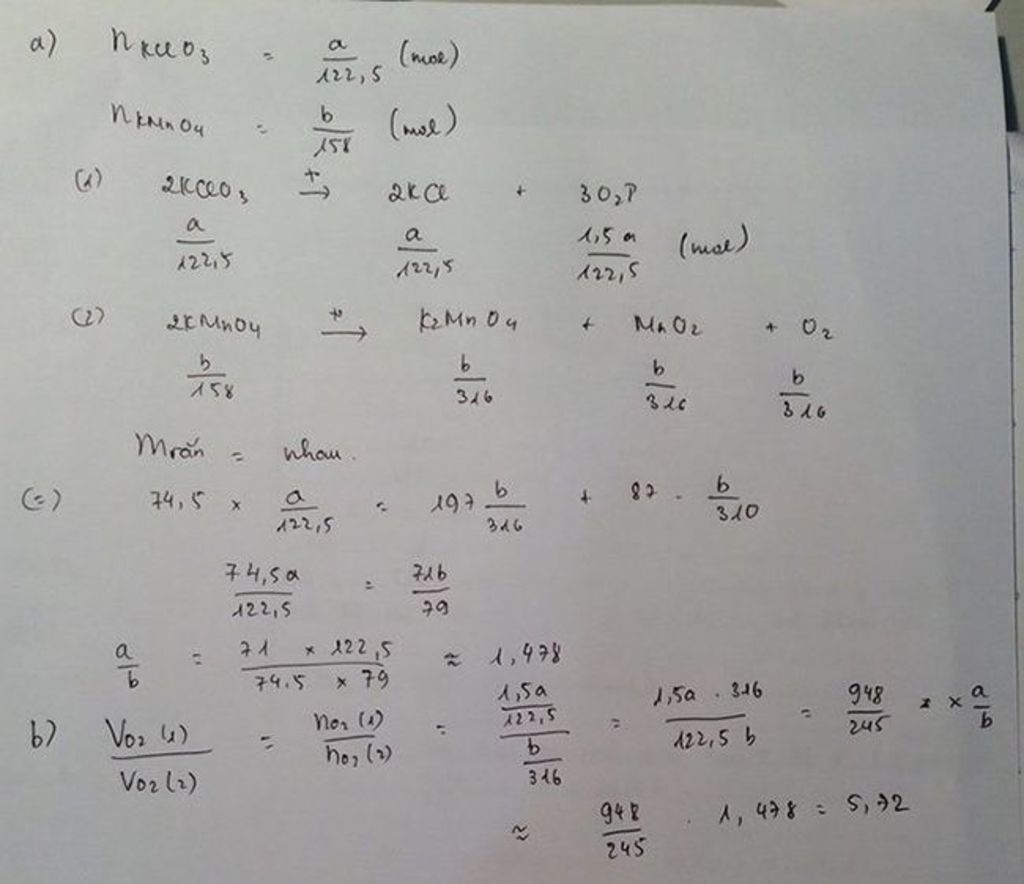 a) nKClO3 = a/122,5 (mol)
nKMnO4 = b/158 (mol)
(1) 2KClO3 →(t°) 2KCl + 3O2↑
a/122,5 a/122,5 1,5a/122,5 (mol)
(2) 2KMnO4 →(t°) K2MnO4 + MnO2 + O2
b/158 b/316 b/316 b/316
Mrắn = nhau.
(=) 74,5 × a/122,5 = 197 b/316 + 87 . b/310
74,5a/122,5 = 71b/79
a/b = 71 × 122,5/74.5 × 79 ≈ 1,478
b) VO2 (1)/VO2 (2) = nO2 (1)/nO2 (2) = 1,5a/122,5/b/316 = 1,5a . 316/122,5 b = 948/245 × a/b
≈ 948/245 . 1,478 = 5,72